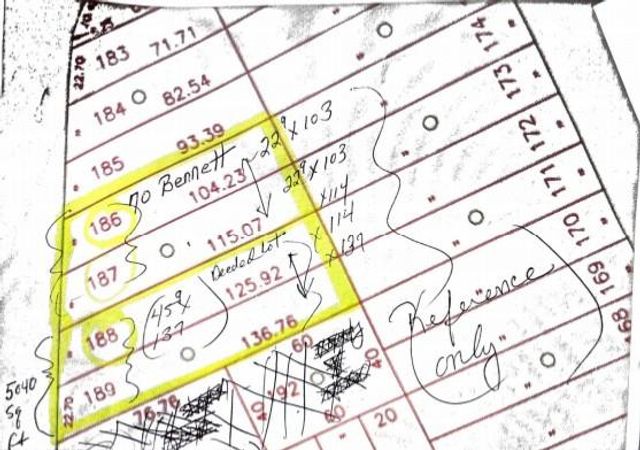 22.70
183 71.71
184 82.54
185 93.39
186 no Bennett 104.23
22⁹ x 103
22⁹ x 103
187 115.07
x 114
x 114
x 137
188 Deeded Lot 125.92
(45⁹ x 137)
189 136.76
22.70
5040
Sq
ft
76.76
60
92
40
60
40
20
174
173
172
171
170
169
168
Reference
only